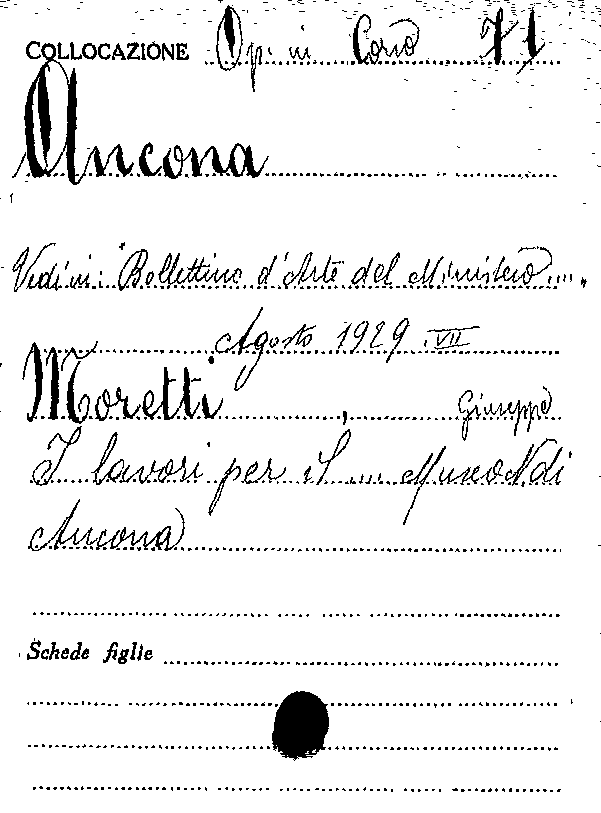 COLLOCAZIONE Op. in Corso 71
Ancona
Vedi in: "Bollettino d'Arte del Ministero....,
Agosto 1929. VII
Moretti, Giuseppe
I lavori per il .... Museo N. di
Ancona
Schede figlie